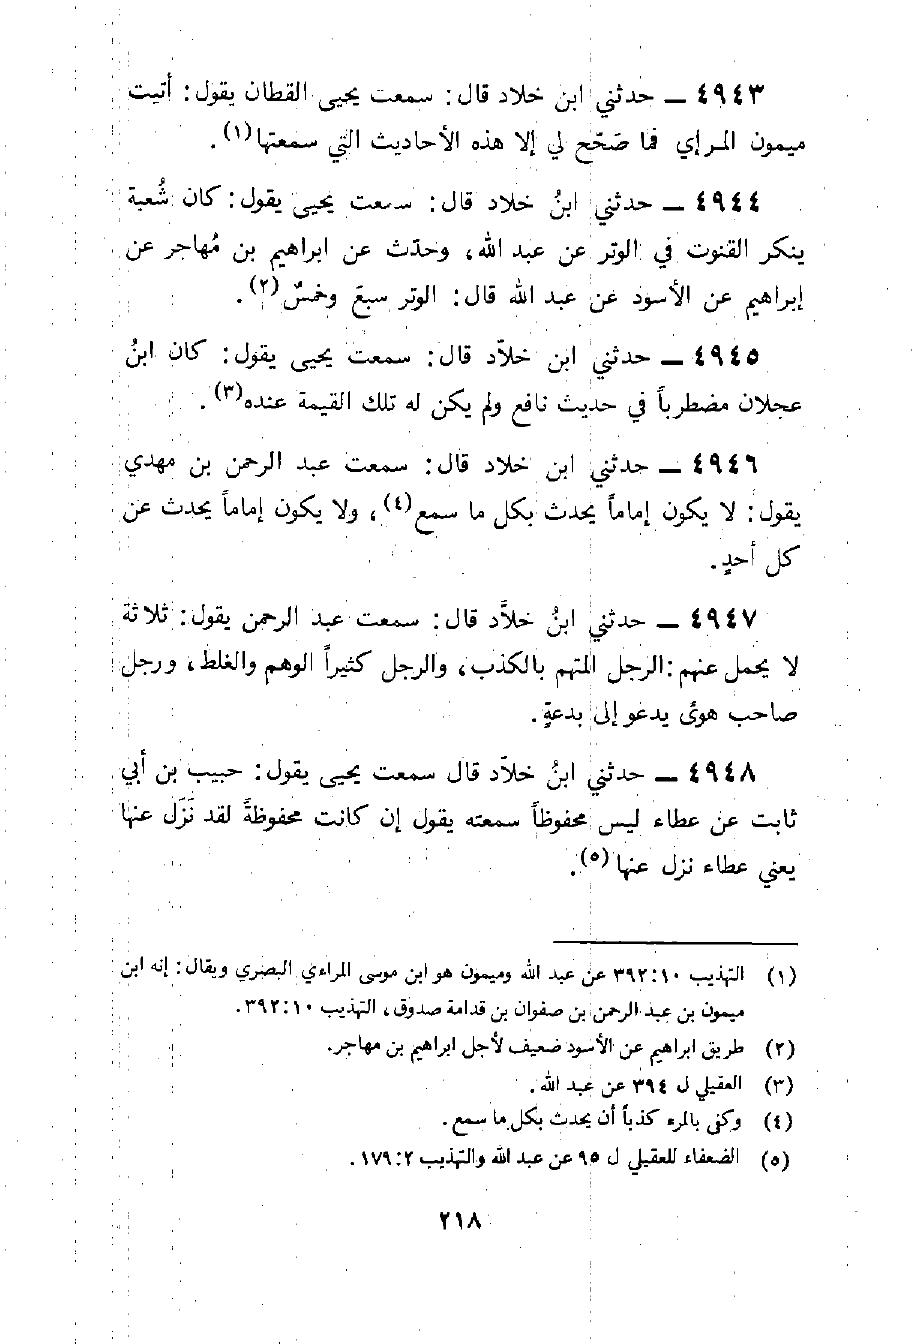 ٤٩٤٣ ــ حدثني ابن خلاد قال: سمعت يحيى القطان يقول: أتيت
ميمون المرإي فما صَحّح لي إلا هذه الأحاديث التي سمعتها(١).
٤٩٤٤ ــ حدثني ابنُ خلاد قال: سمعت يحيى يقول: كان شُعبة
ينكر القنوت في الوتر عن عبد الله، وحدّث عن ابراهيم بن مُهاجر عن
إبراهيم عن الأسود عن عبد الله قال: الوتر سبعٌ وخمسٌ(٢).
٤٩٤٥ ــ حدثني ابن خلاّد قال: سمعت يحيى يقول: كان ابنُ
عجلان مضطرباً في حديث نافع ولم يكن له تلك القيمة عنده(٣).
٤٩٤٦ ــ حدثني ابن خلاد قال: سمعت عبد الرحمن بن مهدي
يقول: لا يكون إماماً يحدث بكل ما سمع(٤)، ولا يكون إماماً يحدث عن
كل أحدٍ.
٤٩٤٧ ــ حدثني ابنُ خلاَّد قال: سمعت عبد الرحمن يقول: ثلاثة
لا يحمل عنهم: الرجل المتهم بالكذب، والرجل كثيراً الوهم والغلط، ورجل
صاحب هوىً يدعو إلى بدعةٍ.
٤٩٤٨ ــ حدثني ابنُ خلاّد قال سمعت يحيى يقول: حبيب بن أبي
ثابت عن عطاء ليس محفوظاً سمعته يقول إن كانت محفوظةً لقد نَزَل عنها
يعني عطاء نزل عنها(٥).
(١) التهذيب ٣٩٢:١٠ عن عبد الله وميمون هو ابن موسى المراءي البصري ويقال: إنه ابن
ميمون بن عبد الرحمن بن صفوان بن قدامة صدوق، التهذيب ٣٩٢:١٠.
(٢) طريق ابراهيم عن الأسود ضعيف لأجل ابراهيم بن مهاجر.
(٣) العقيلي ل ٣٩٤ عن عبد الله.
(٤) وكفى بالمرء كذباً أن يحدث بكل ما سمع.
(٥) الضعفاء للعقيلي ل ٩٥ عن عبد الله والتهذيب ١٧٩:٢.
٢١٨